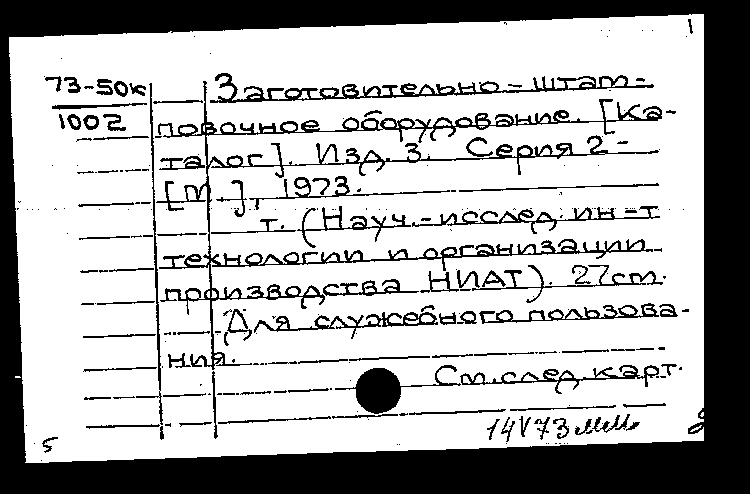 1
73-50к
1002
Заготовительно-штам-
повочное оборудование. [Ка-
талог]. Изд. 3. Серия 2-
[М.], 1973.
т. (Науч.-исслед. ин-т
технологии и организации
производства НИАТ). 27см.
Для служебного пользова-
ния.
См. след. карт.
14V73
5